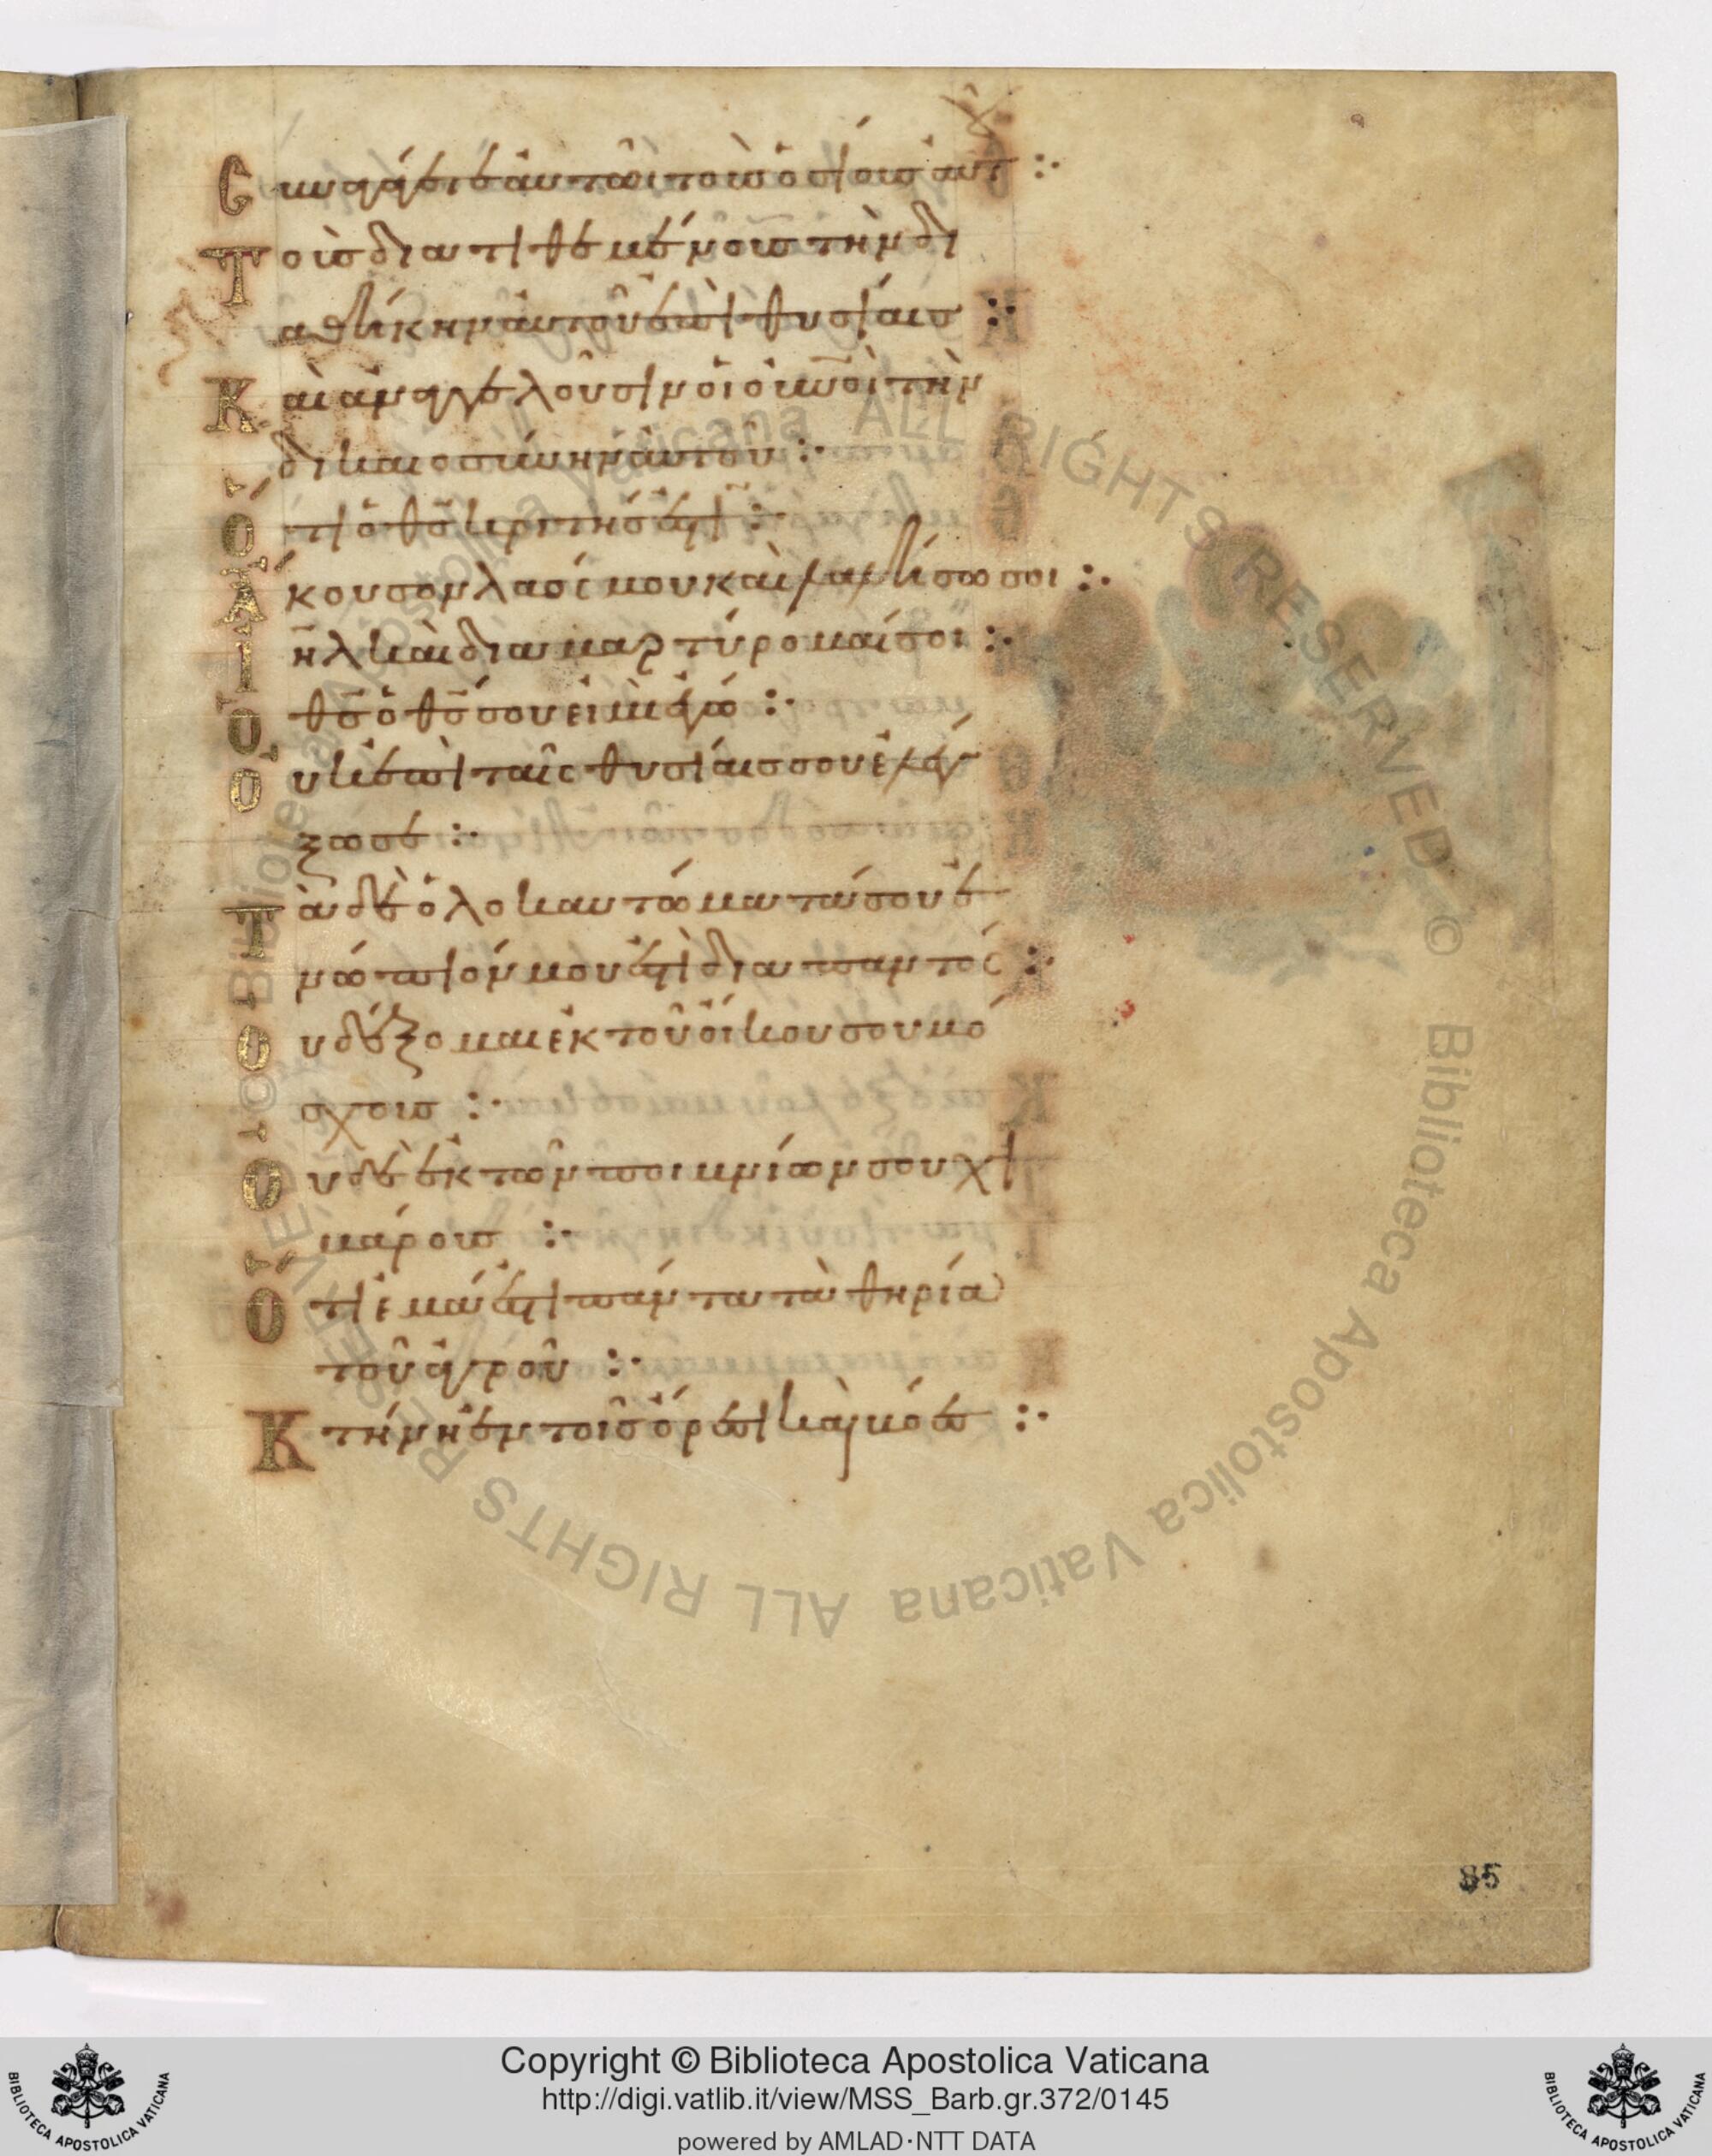 Συναγάγετε αὐτῶι τοὺς ὁσίους αὐτ :·
Τοὺς διατιθεμένους τὴν δι
αθήκην αὐτοῦ ἐπὶ θυσίαις :·
Καὶ ἀναγγελοῦσιν οἱ οὐνοὶ τὴν
δικαιοσύνην αὐτοῦ :·
Ὅτι ὁ θς κριτής ἐστι :·
Ἄκουσον λαός μου καὶ λαλήσω σοι :·
Ιηλ καὶ διαμαρτύρομαί σοι :·
Ὁ θς ὁ θς σου εἰμι ἐγώ :·
Οὐκ ἐπὶ ταῖς θυσίαις σου ἐλέγ
ξω σε :·
Τὰ δὲ ὁλοκαυτώματά σου ἐ
νώπιόν μου ἐστὶ διαπαντός :·
Οὐ δέξομαι ἐκ τοῦ οἴκου σου μό
σχους :·
Οὐδὲ ἐκ τῶν ποιμνίων σου χι
μάρους :·
Ὅτι ἐμά ἐστι πάντα τὰ θηρία
τοῦ ἀγροῦ :·
Κτήνη ἐν τοῖς ὄρεσι καὶ βόες :·
85
Biblioteca Apostolica Vaticana ALL RIGHTS RESERVED © Biblioteca Apostolica Vaticana ALL RIGHTS RESERVED ©
Copyright © Biblioteca Apostolica Vaticana
http://digi.vatlib.it/view/MSS_Barb.gr.372/0145
powered by AMLAD·NTT DATA
BIBLIOTECA APOSTOLICA VATICANA
BIBLIOTECA APOSTOLICA VATICANA